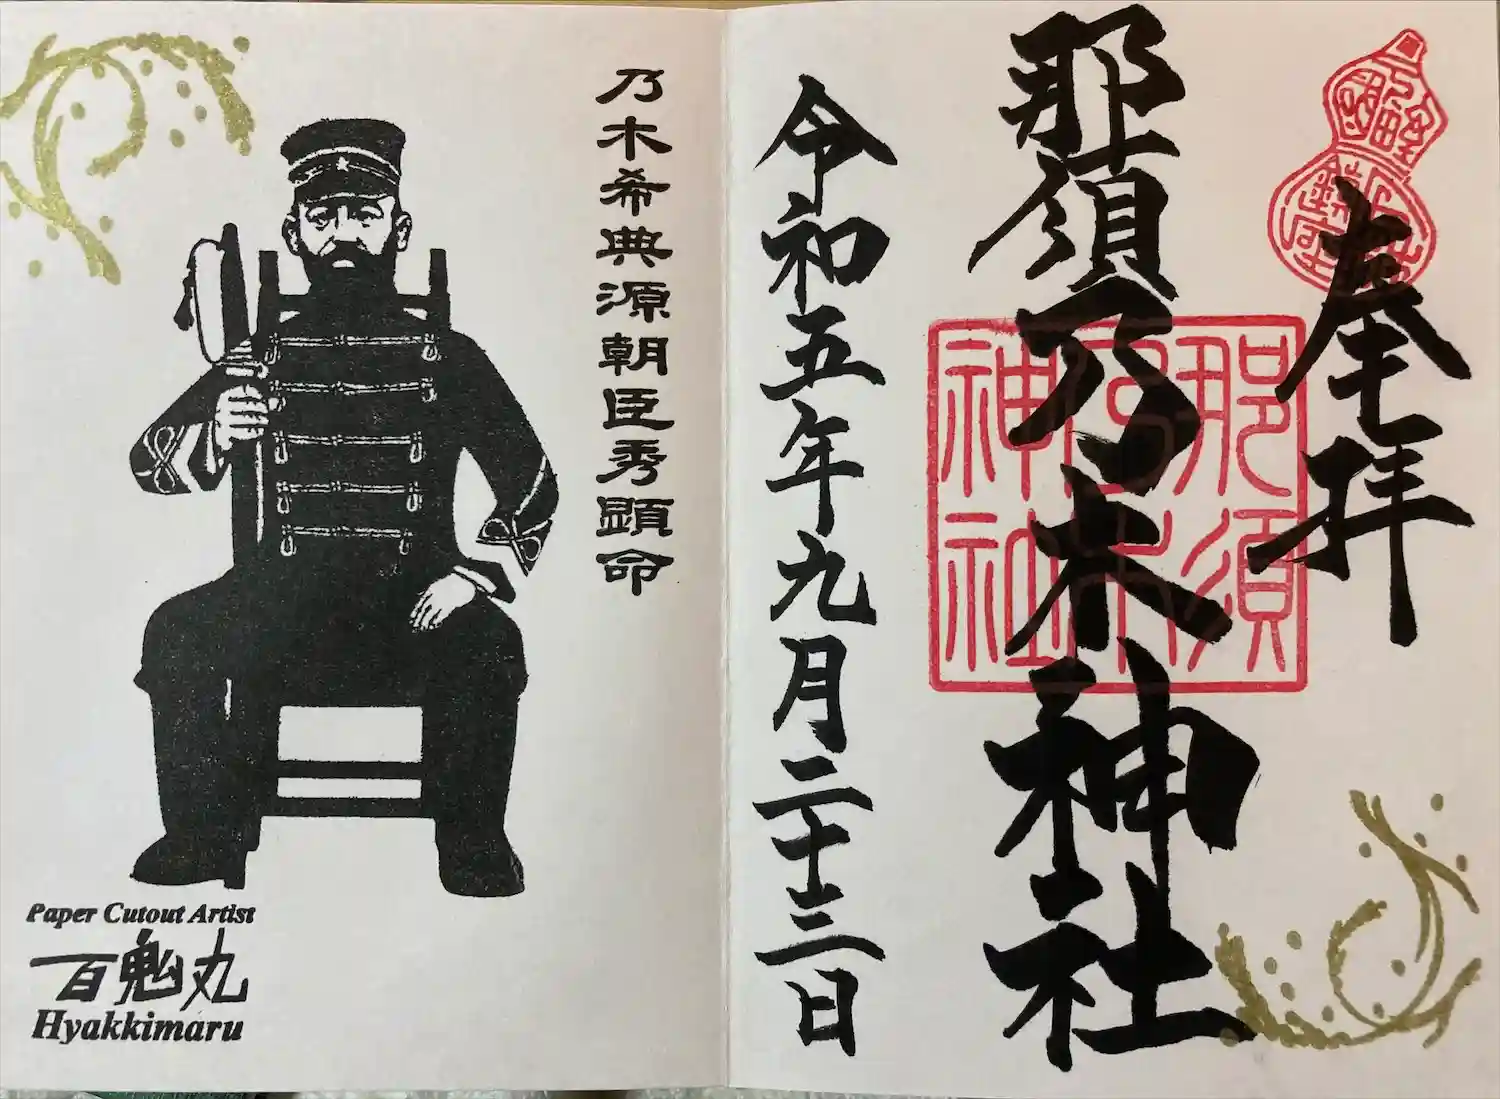 奉拝
那須乃木神社
那須
乃木
神社
令和五年九月二十三日
乃木希典源朝臣秀顕命
Paper Cutout Artist
百鬼丸
Hyakkimaru